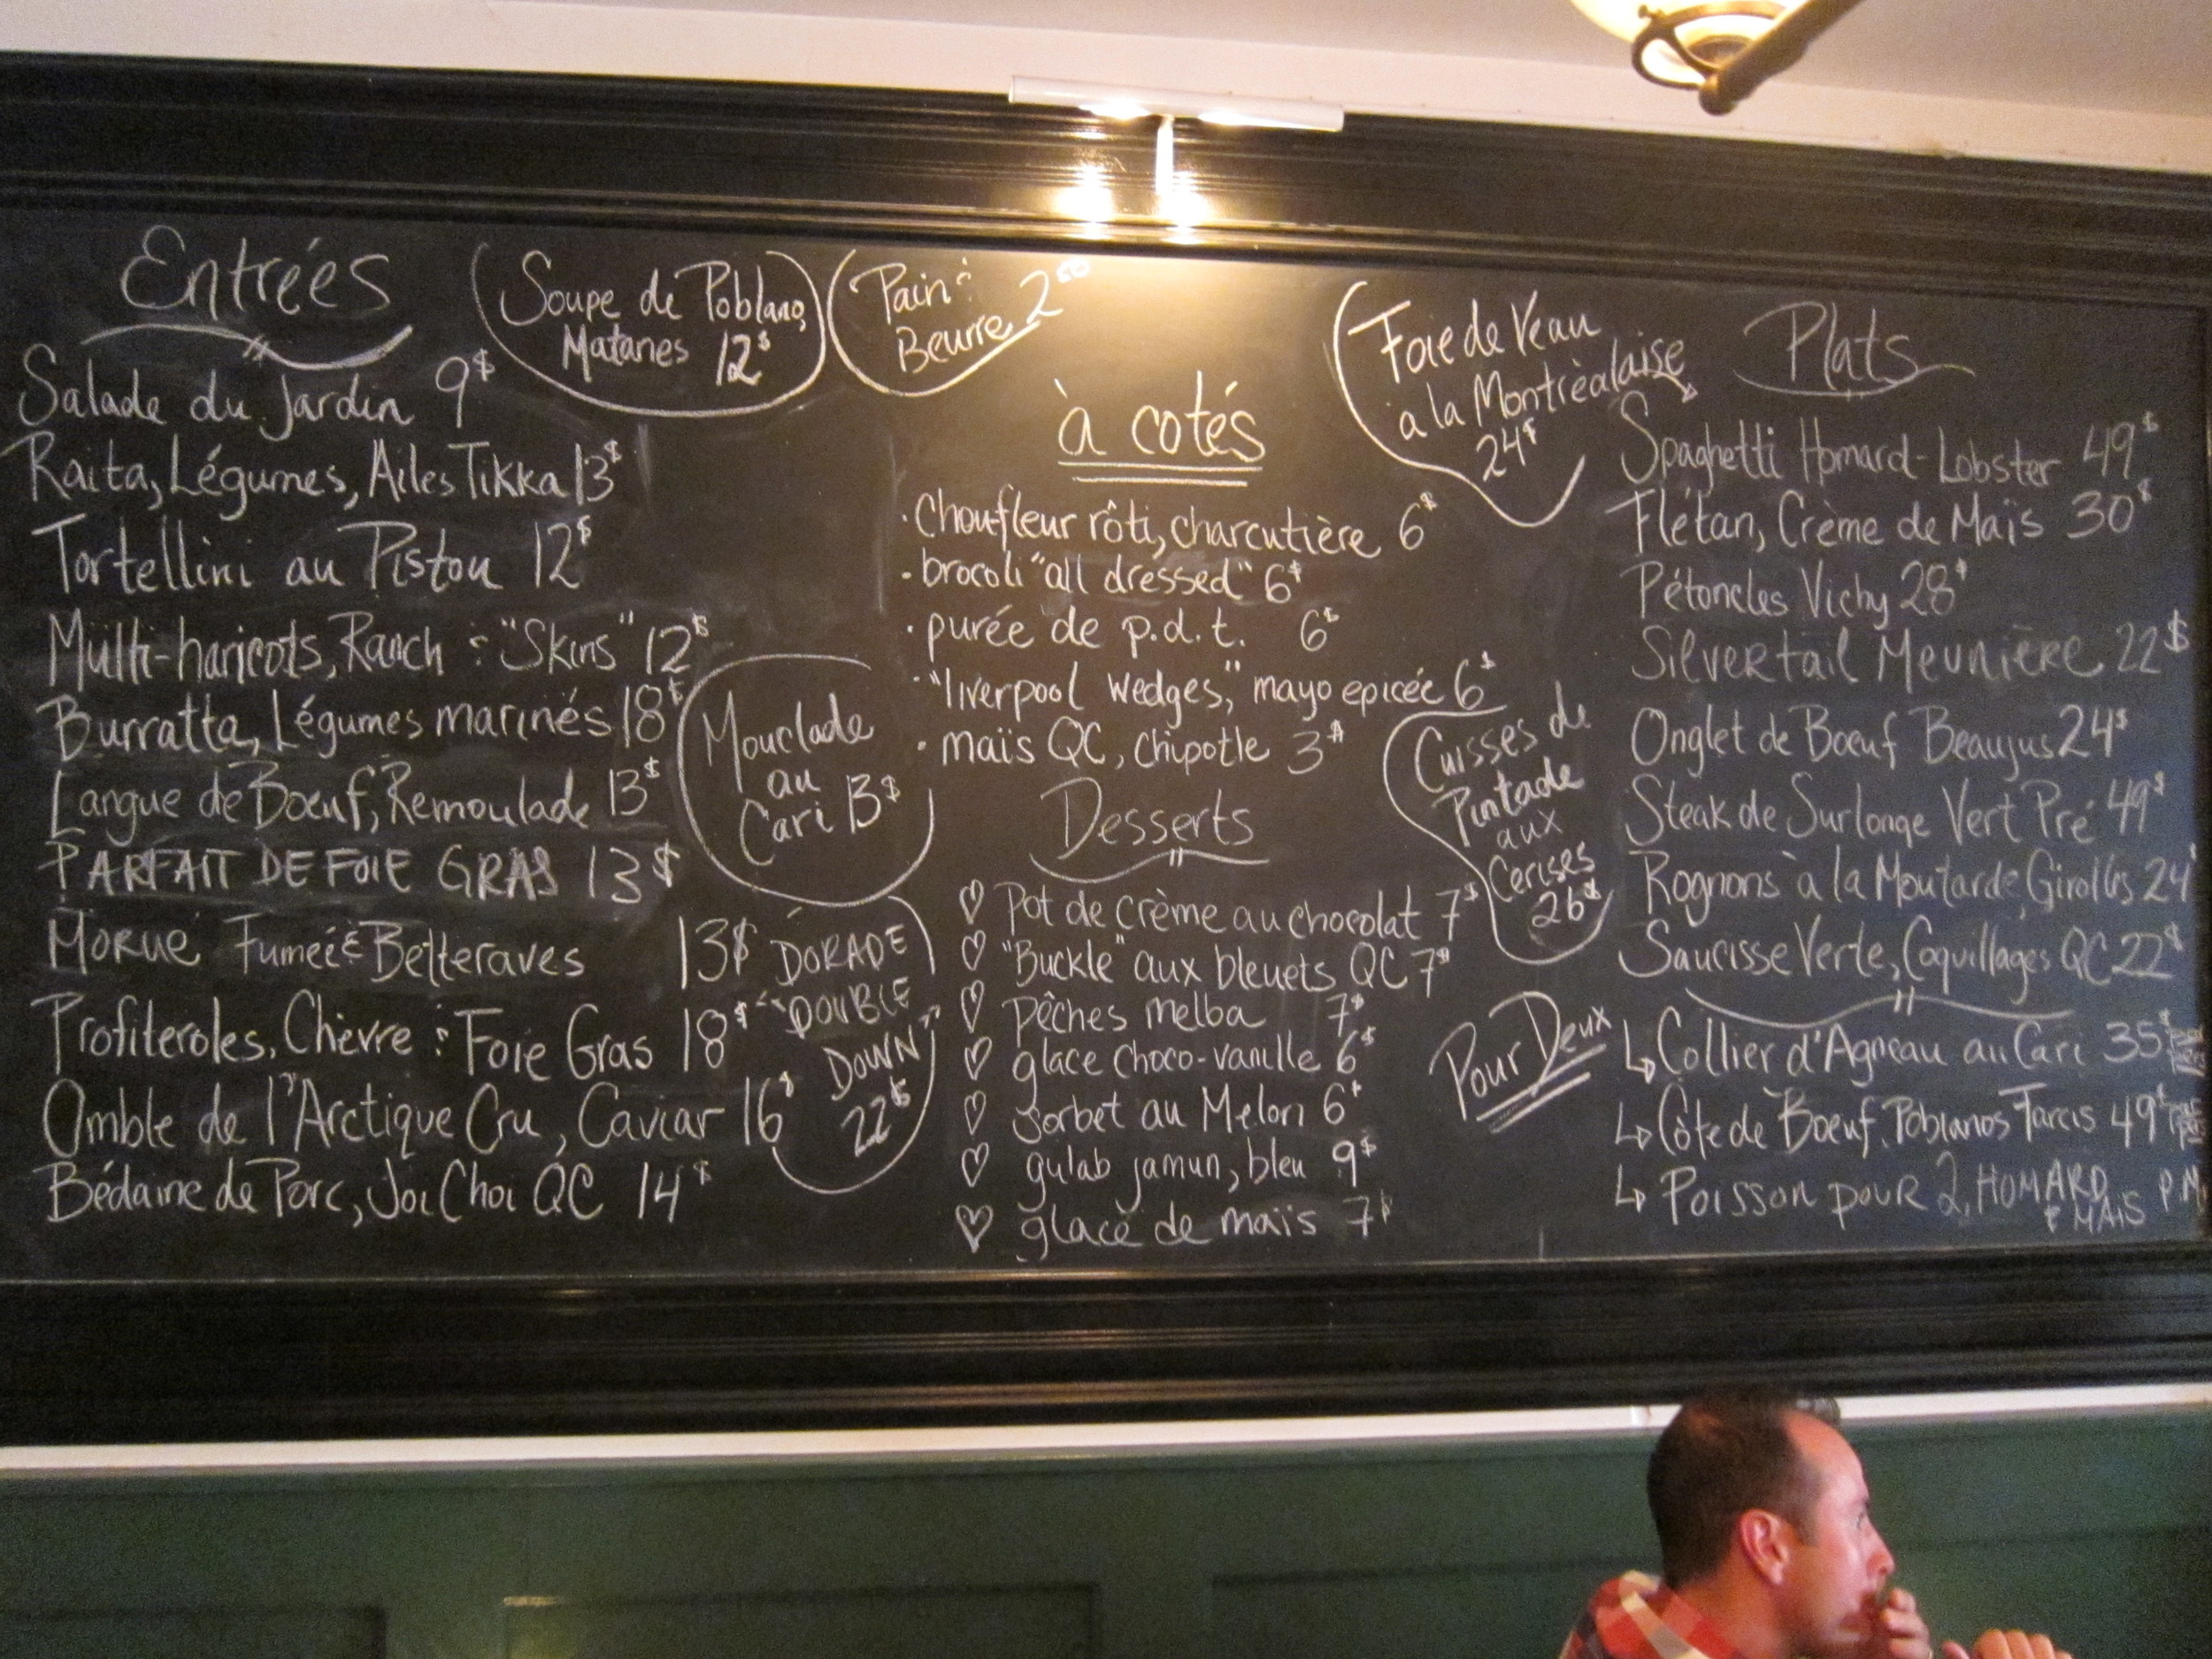 Entrées
Salade du Jardin 9$
Raita, Légumes, Ailes Tikka 13$
Tortellini au Pistou 12$
Multi-haricots, Ranch & "Skins" 12$
Burratta, Légumes marinés 18$
Langue de Boeuf, Remoulade 13$
PARFAIT DE FOIE GRAS 13$
Morue Fumée & Betteraves 13$
Profiteroles, Chèvre & Foie Gras 18$
Omble de l'Arctique Cru, Caviar 16$
Bédaine de Porc, Joi Choi QC 14$
Soupe de Poblano,
Matanes 12$
Pain &
Beurre 2.50
Mouclade
au
Cari 13$
DORADE
"DOUBLE
DOWN"
22$
à cotés
• Choufleur rôti, charcutière 6$
• brocoli "all dressed" 6$
• purée de p.d.t. 6$
• "liverpool wedges," mayo epicée 6$
• maïs QC, chipotle 3$
Desserts
♡ Pot de crème au chocolat 7$
♡ "Buckle" aux bleuets QC 7$
♡ pêches melba 7$
♡ glace choco-vanille 6$
♡ sorbet au Melon 6$
♡ gulab jamun, bleu 9$
♡ glace de maïs 7$
Foie de Veau
à la Montrèalaise
24$
Cuisses de
Pintade
aux
Cerises
26$
Plats
Spaghetti Homard-Lobster 49$
Flétan, Crème de Maïs 30$
Pétoncles Vichy 28$
Silvertail Meunière 22$
Onglet de Boeuf Beaujus 24$
Steak de Surlonge Vert Pré 49$
Rognons à la Moutarde, Girolles 24$
Saucisse Verte, Coquillages QC 22$
Pour Deux
↳ Collier d'Agneau au Cari 35$
↳ Côte de Boeuf, Poblanos Farcis 49$
↳ Poisson pour 2, HOMARD P.M.
& MAïS